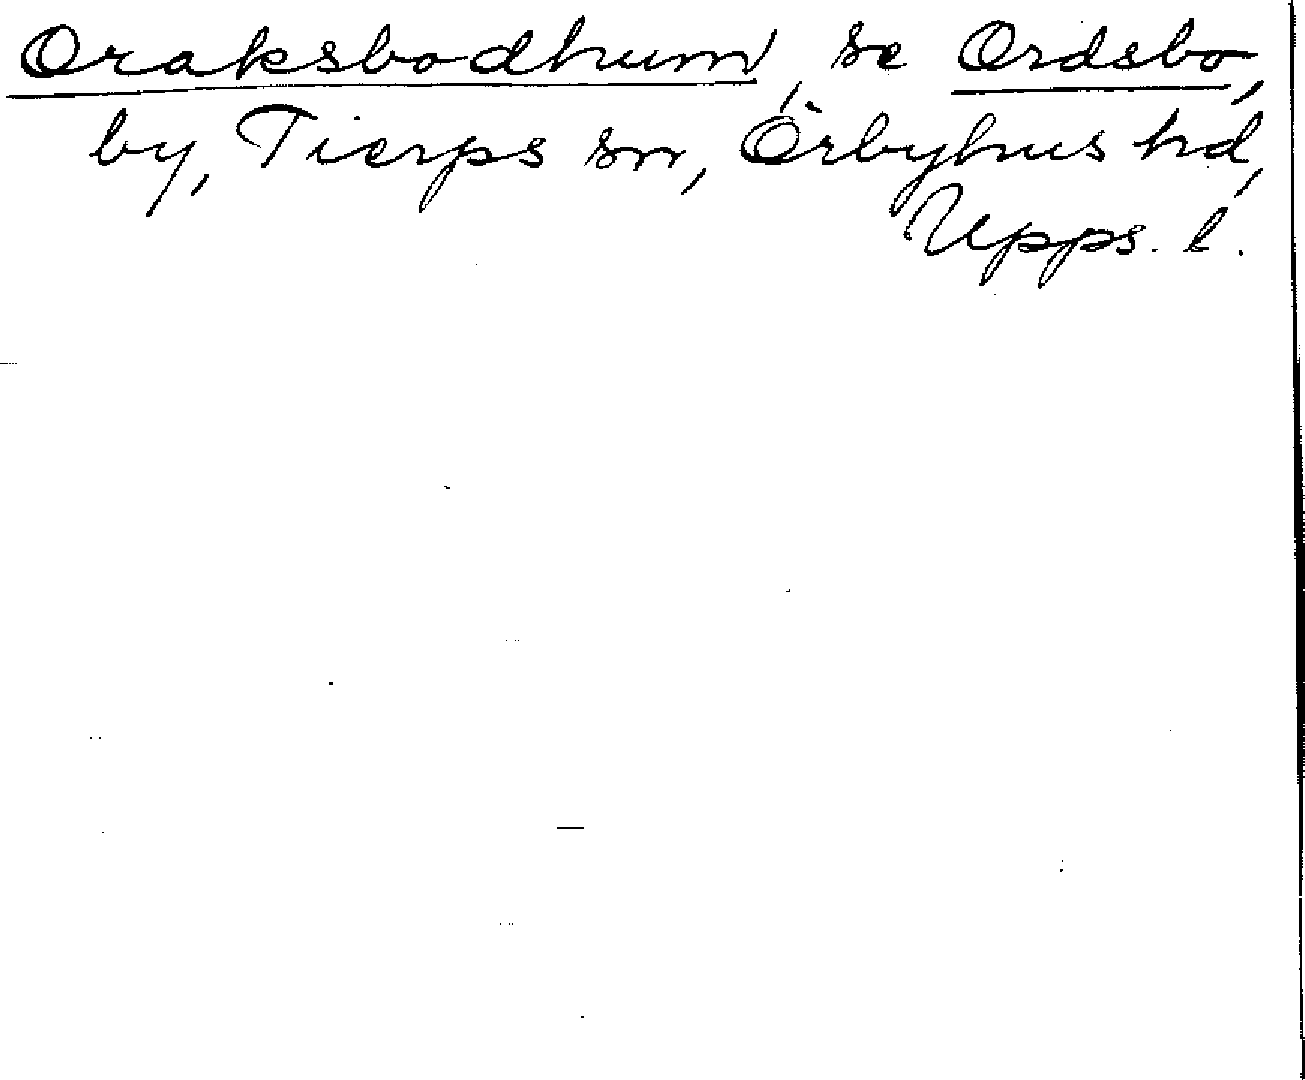 Oraksbodhum, se Ordsbo,
by, Tierps sn, Örbyhus hd,
Upps. l.